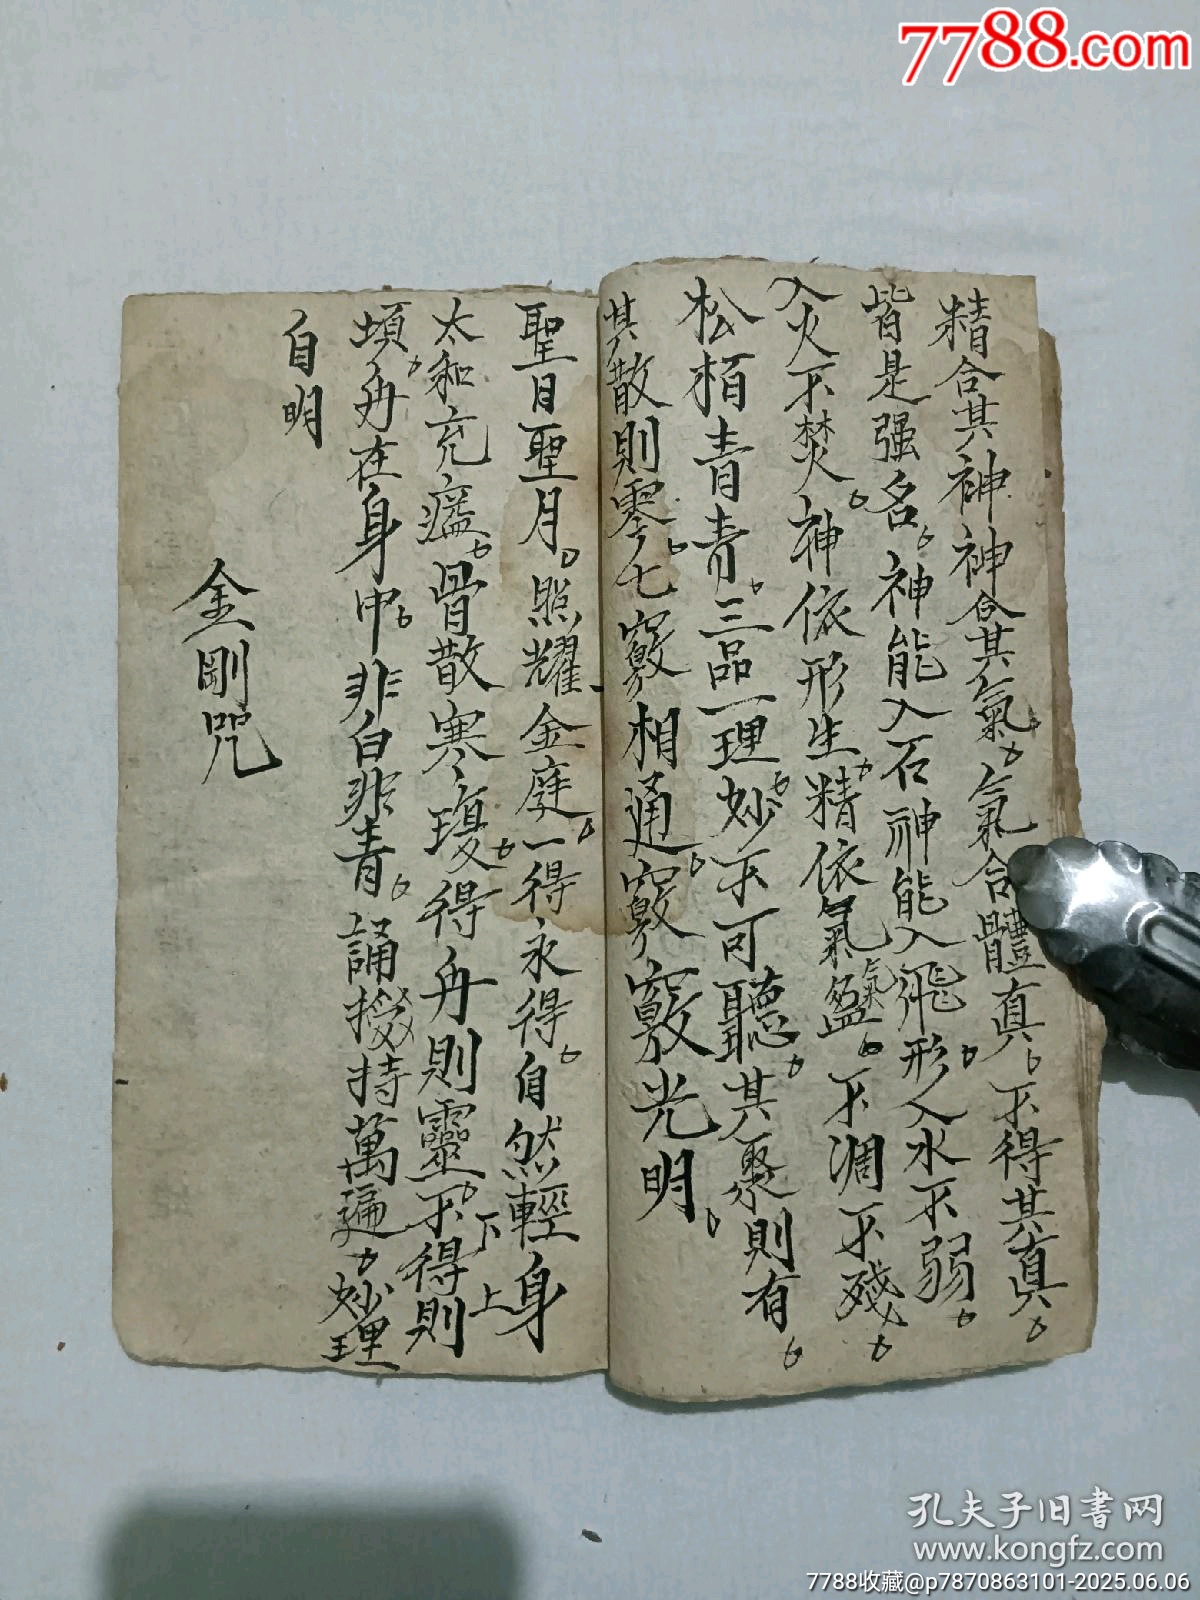 7788.com
精合其神神合其氣氣合體真不得其真
皆是强名神能入石神能入飛形入水不弱
入火不焚神依形生精依氣盈不凋不殘
氣
松栢青青三品一理妙不可聽其聚則有
其散則零七竅相通竅竅光明
聖日聖月照耀金庭一得永得自然輕身
太和充瘟骨散寒瓊得舟則靈不得則
下上
頃舟在身中非白非青誦持萬遍妙理
自明
金剛咒
孔夫子旧書网
www.kongfz.com
7788收藏@p7870863101-2025.06.06